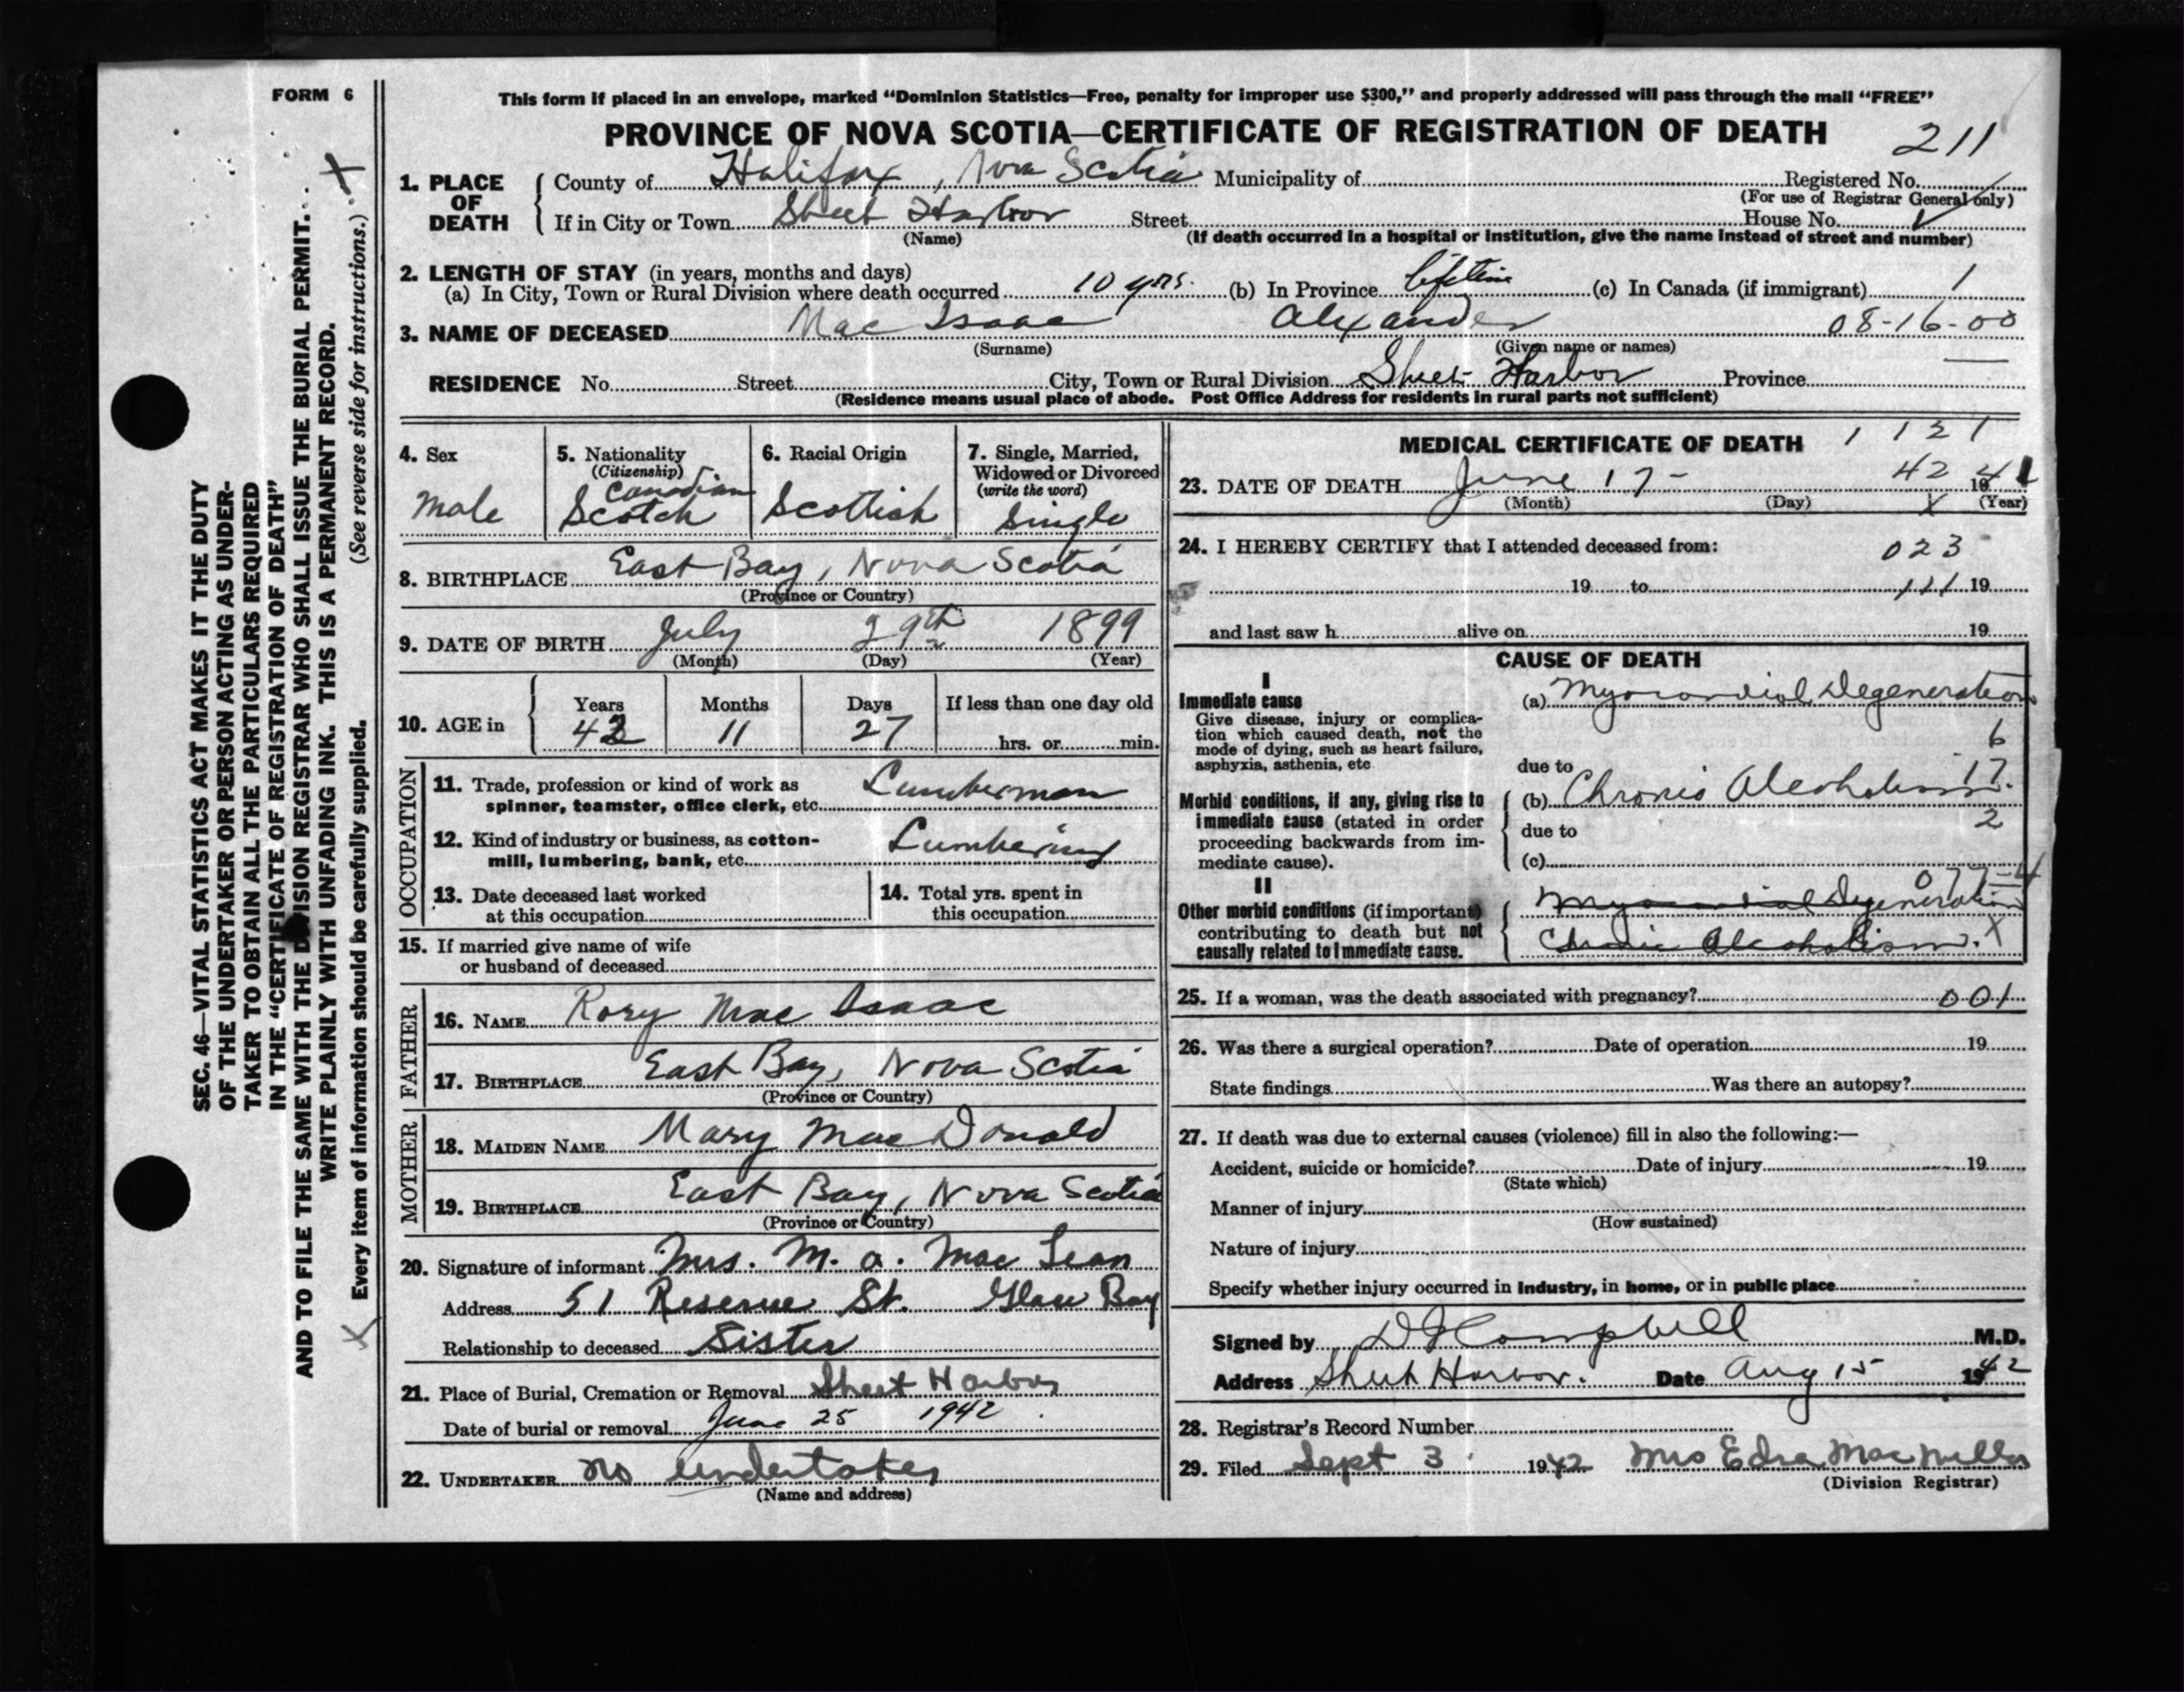 FORM 6
SEC. 46—VITAL STATISTICS ACT MAKES IT THE DUTY
OF THE UNDERTAKER OR PERSON ACTING AS UNDER-
TAKER TO OBTAIN ALL THE PARTICULARS REQUIRED
IN THE "CERTIFICATE OF REGISTRATION OF DEATH"
AND TO FILE THE SAME WITH THE DIVISION REGISTRAR WHO SHALL ISSUE THE BURIAL PERMIT.
WRITE PLAINLY WITH UNFADING INK. THIS IS A PERMANENT RECORD.
Every item of information should be carefully supplied. (See reverse side for instructions.)
This form if placed in an envelope, marked "Dominion Statistics—Free, penalty for improper use $300," and properly addressed will pass through the mail "FREE"
PROVINCE OF NOVA SCOTIA—CERTIFICATE OF REGISTRATION OF DEATH 211
1. PLACE OF DEATH
County of Halifax, Nova Scotia Municipality of Registered No.
(For use of Registrar General only)
If in City or Town Sheet Harbor Street House No.
(Name) (If death occurred in a hospital or institution, give the name instead of street and number)
2. LENGTH OF STAY (in years, months and days)
(a) In City, Town or Rural Division where death occurred 10 yrs. (b) In Province lifetime (c) In Canada (if immigrant) 1
3. NAME OF DECEASED Mac Isaac Alexander 08-16-00
(Surname) (Given name or names)
RESIDENCE No. Street City, Town or Rural Division Sheet Harbor Province —
(Residence means usual place of abode. Post Office Address for residents in rural parts not sufficient)
4. Sex 5. Nationality 6. Racial Origin 7. Single, Married,
(Citizenship) Widowed or Divorced
(write the word)
Canadian
Male Scotch Scottish Single
8. BIRTHPLACE East Bay, Nova Scotia
(Province or Country)
9. DATE OF BIRTH July 29th 1899
(Month) (Day) (Year)
10. AGE in Years Months Days If less than one day old
42 11 27 hrs. or min.
OCCUPATION
11. Trade, profession or kind of work as
spinner, teamster, office clerk, etc. Lumberman
12. Kind of industry or business, as cotton-
mill, lumbering, bank, etc. Lumbering
13. Date deceased last worked
at this occupation
14. Total yrs. spent in
this occupation
15. If married give name of wife
or husband of deceased
FATHER
16. NAME Rory Mac Isaac
17. BIRTHPLACE East Bay, Nova Scotia
(Province or Country)
MOTHER
18. MAIDEN NAME Mary Mac Donald
19. BIRTHPLACE East Bay, Nova Scotia
(Province or Country)
20. Signature of informant Mrs. M. A. Mac Lean
Address 51 Reserve St. Glace Bay
Relationship to deceased Sister
21. Place of Burial, Cremation or Removal Sheet Harbor
Date of burial or removal June 25 1942
22. UNDERTAKER No undertaker
(Name and address)
MEDICAL CERTIFICATE OF DEATH 1 121
23. DATE OF DEATH June 17- 42 19
(Month) (Day) (Year)
24. I HEREBY CERTIFY that I attended deceased from: 023
19 to 111 19
and last saw h alive on 19
CAUSE OF DEATH
I
Immediate cause (a) Myocardial Degeneration
Give disease, injury or complica-
tion which caused death, not the
mode of dying, such as heart failure,
asphyxia, asthenia, etc. 6
due to 17
Morbid conditions, if any, giving rise to (b) Chronic Alcoholism.
immediate cause (stated in order due to 2
proceeding backwards from im-
mediate cause). (c)
077-4
II
Other morbid conditions (if important) Myocardial Degeneration
contributing to death but not
causally related to immediate cause. Chronic Alcoholism. X
25. If a woman, was the death associated with pregnancy? 001
26. Was there a surgical operation? Date of operation 19
State findings Was there an autopsy?
27. If death was due to external causes (violence) fill in also the following:—
Accident, suicide or homicide? Date of injury 19
(State which)
Manner of injury
(How sustained)
Nature of injury
Specify whether injury occurred in industry, in home, or in public place
Signed by D J Campbell M.D.
Address Sheet Harbor. Date Aug 15 1942
28. Registrar's Record Number
29. Filed Sept 3 1942 Mrs Edna Mac Millan
(Division Registrar)